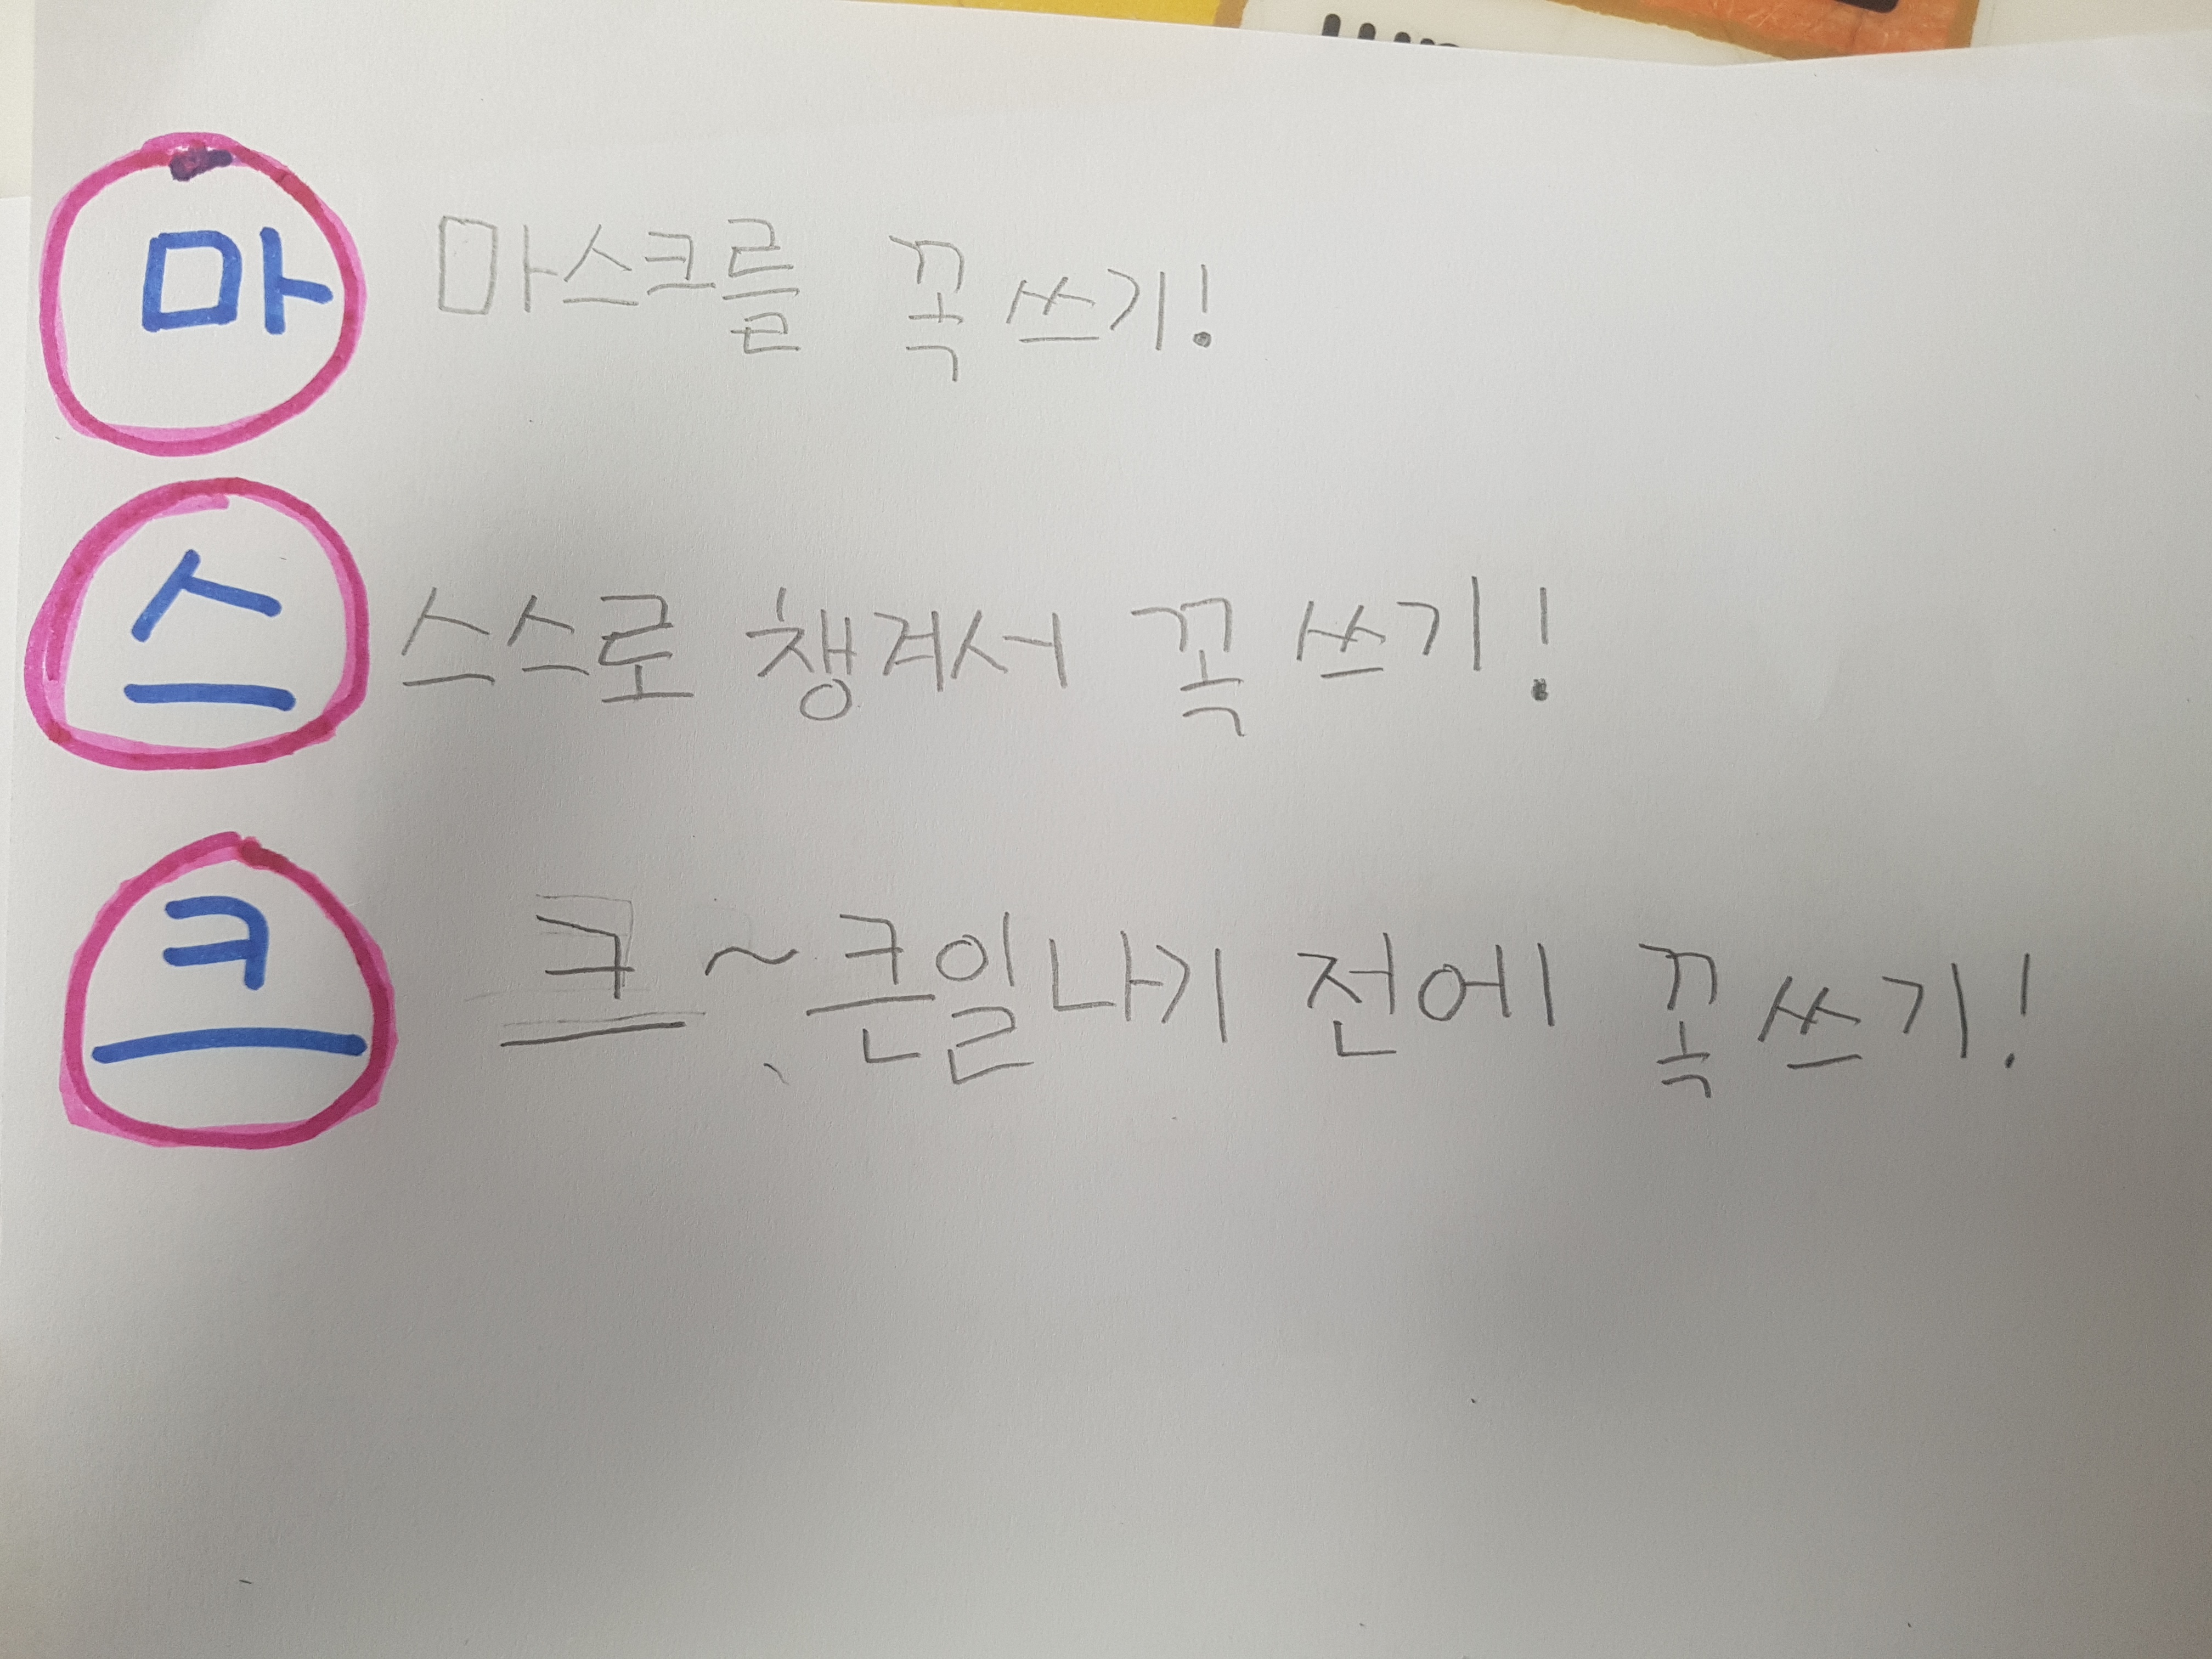 마 마스크를 꼭 쓰기!
스 스스로 챙겨서 꼭 쓰기!
크 크~큰일나기 전에 꼭 쓰기!